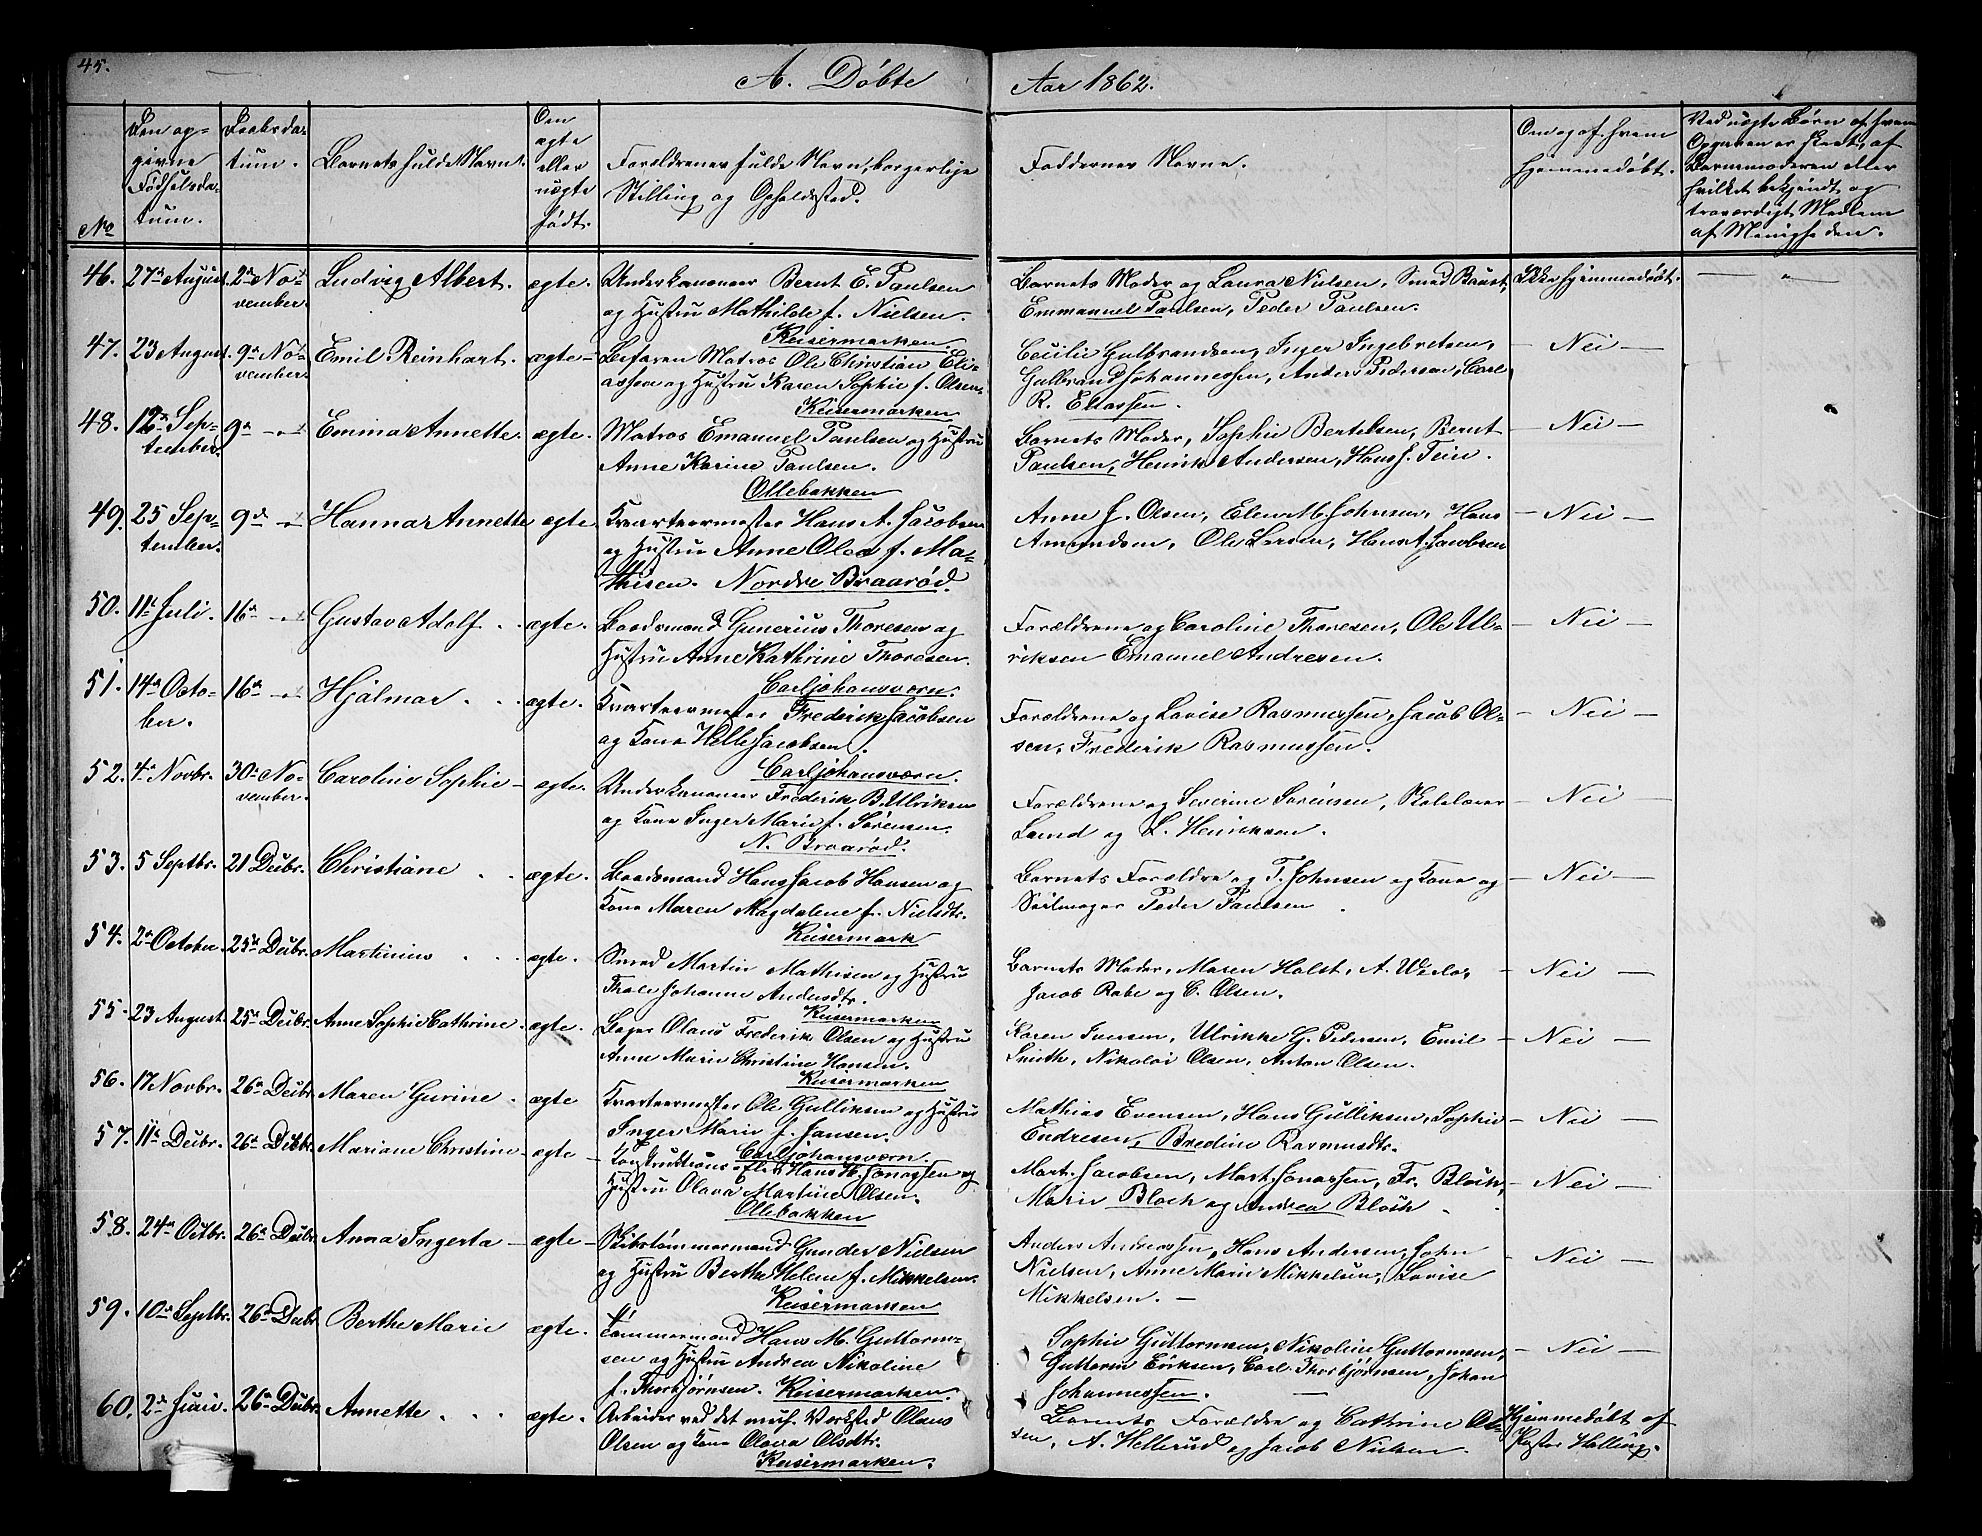 45.
A. Døbte
Aar 1862.
No
Den op-
givne
Fødselsda-
tum.
Daabsda-
tum.
Barnets fulde Navn.
Om
ægte
eller
uægte
født.
Forældrenes fulde Navn, borgerlige
Stilling og Opholdssted.
Faddernes Navne.
Om og af hvem
hjemmedøbt.
Ved uægte Børn af hvem
Opgaven er skeet, af
Barnemoderen eller
hvilket bekjendt og
troværdigt Medlem
af Menigheden.
46. 27de August. 2den No-
vember.
Ludvig Albert. ægte.
Underkanoneer Bernt E. Paulsen
og Hustru Mathilde f. Nielsen.
Keisermarken.
Barnets Moder og Laura Nielsen, Smed Baust,
Emmanuel Paulsen, Peder Paulsen.
Ikke hjemmedøbt.
47. 23 August. 9de No-
vember.
Emil Reinhart. ægte-
Befaren Matros Ole Christian Eli-
assen og Hustru Karen Sophie f. Olsen.
Keisermarken
Cecilie Gulbrandsen, Inger Ingebretsen,
Gulbrand Johannessen, Anders Pedersen, Carl
R. Eliassen.
- Nei -
48. 12te Sep-
tember.
9de
Emma Annette. ægte.
Matros Emanuel Paulsen og Hustru
Anne Karine Paulsen.
Ollebakken
Barnets Moder, Sophie Bertelsen, Bernt
Paulsen, Henrik Andersen, Hans J. Fein.
- Nei -
49. 25 Sep-
tember.
9de
Hanna Annette ægte.
Kvarteermester Hans A. Jacobsen
og Hustru Anne Olea f. Ma-
thisen. Nordre Braarød.
Anne J. Olsen, Elen M. Johnsen, Hans
Amundsen, Ole Larsen, Hans A. Jacobsen
- Nei -
50. 11te Juli. 16de
Gustav Adolf . . ægte.
Baadsmand Gunerius Thoresen og
Hustru Anne Kathrine Thoresen.
Carljohansværn.
Forældrene og Caroline Thoresen, Ole Ul-
riksen Emanuel Andresen.
- Nei -
51. 14de Octo-
ber.
16de
Hjalmar . . ægte.
Kvarteermester Frederik Jacobsen
og Kone Helle Jacobsen.
Carljohansværn.
Forældrene og Lovise Rasmussen, Jacob Ol-
sen, Frederik Rasmussen.
- Nei -
52. 4de Novbr. 30te No-
vember.
Caroline Sophie - ægte.
Underkanoneer Frederik B. Ulriksen
og Kone Inger Marie f. Sørensen.
N. Braarød.
Forældrene og Severine Sørensen, Skolelærer
Lund og L. Henriksen.
- Nei -
53. 5 Septbr. 21 Decbr.
Christiane . . ægte.
Baadsmand Hans Jacob Hansen og
Kone Maren Magdalene f. Nielsdtr.
Keisermark
Barnets Forældre og T. Johnsen og Kone og
Seilmager Peder Paulsen .
- Nei -
54. 2den October. 25de Decbr.
Martinius . . ægte.
Smed Martin Mathisen og Hustru
Thale Johanne Andersdtr.
Keisermarken
Barnets Moder, Maren Holst, A.
Jacob Rabe og C. Olsen.
- Nei -
55. 23 August. 25de Decbr.
Anne Sophie Cathrine. ægte.
Bager Olaus Frederik Olsen og Hustru
Anne Marie Christine Hansen.
Keisermarken
Karen Iversen, Ulrikke G. Pedersen, Emil
Smith, Nikolai Olsen, Anton Olsen.
- Nei -
56. 17 Novbr. 26de Decbr.
Maren Gurine. ægte
Kvarteermester Ole Gulliksen og Hustru
Inger Marie f. Jansen.
Carljohansværn.
Mathias Evensen, Hans Gulliksen, Sophie
Endresen, Bredine Rasmusdtr.
- Nei -
57. 11te Decbr. 26de Decbr.
Mariane Christine - ægte -
Konstruktionselev Hans H. Jonassen og
Hustru Olava Martine Olsen.
Ollebakken
Mart. Jacobsen, Mart. Jonassen, Fr. Bloch,
Marie Bloch og Andrea Bloch.
- Nei -
58. 24de Octbr. 26de Decbr.
Anna Ingerta - ægte -
Skibstømmermand Gunder Nielsen
og Hustru Berthe Helene f. Mikkelsen.
Keisermarken
Anders Andreassen, Hans Andersen, John
Nielsen, Anne Marie Mikkelsen, Lovise
Mikkelsen. -
- Nei -
59. 10de Septbr. 26de Decbr
Berthe Marie ægte.
Tømmermand Hans M. Guttorm-
sen og Hustru Andrea Nikoline
f. Thorbjørnsen. Keisermarken.
Sophie Guttormsen, Nikoline Guttormsen,
Guttorm Eriksen, Carl Thorbjørnsen, Johan
Johannessen.
- Nei -
60. 2den Juni. 26de Decbr.
Annette . . ægte.
Arbeider ved det mek. Værksted Olaus
Olsen og Kone Olava Olsdtr.
Keisermarken.
Barnets Forældre og Cathrine Ol-
sen, A. Hellerud og Jacob Nielsen.
Hjemmedøbt af
Kyster Holling.